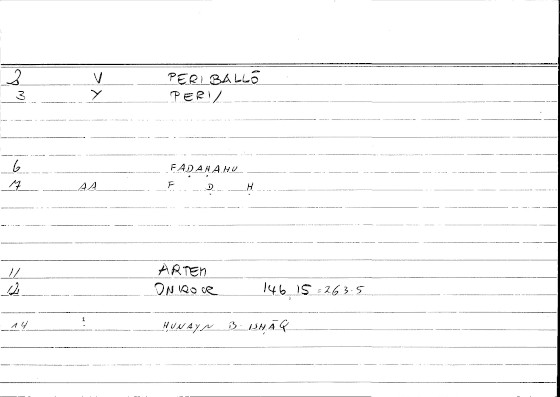 2 V PERIBALLŌ
3 Y PERI/
6 FAḌAḤAHU
7 AA F Ḍ Ḥ
11 ARTEM
12 ONIROCR 146,15=263.5
14 : HUNAYN B ISHĀQ